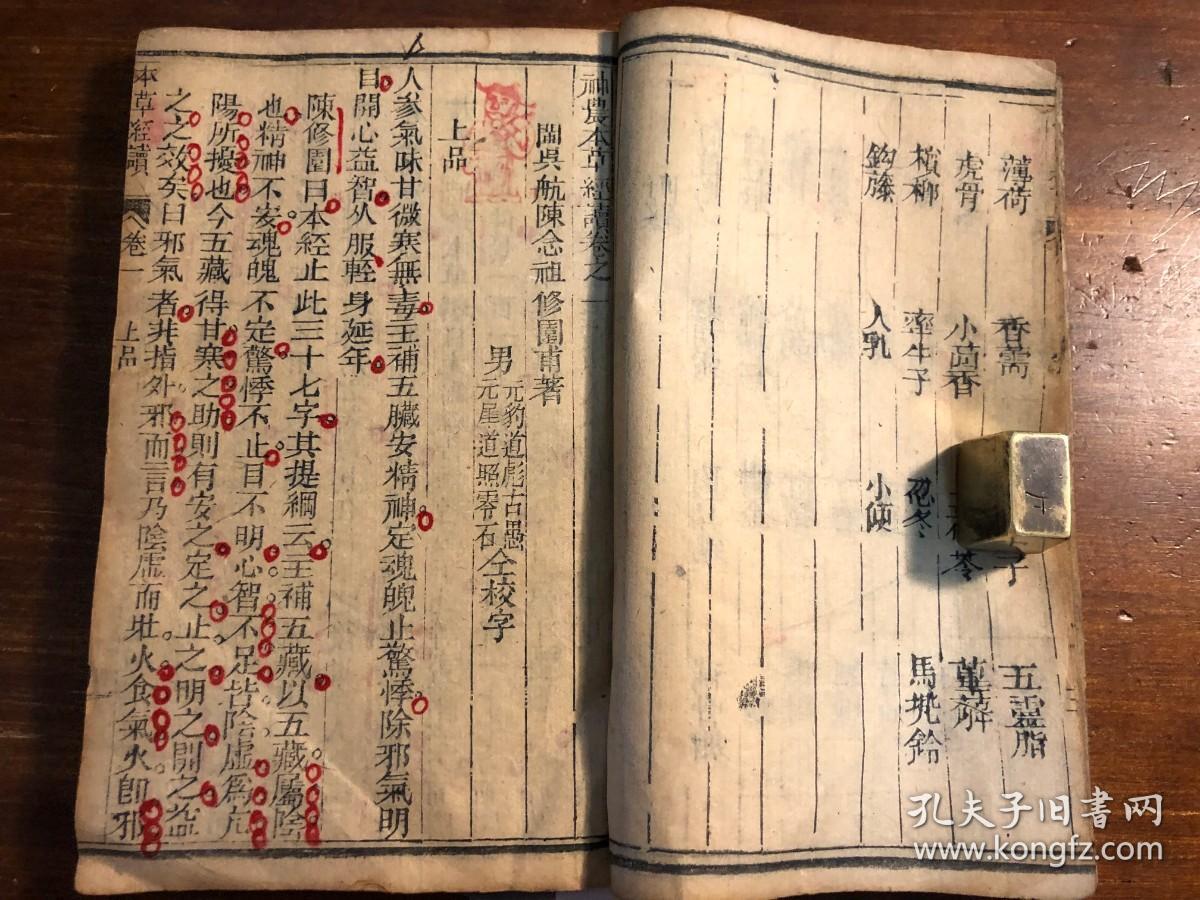 薄荷 香薷 五靈脂
虎骨 小茴香 萆薢
檳榔 牽牛子 忍冬 馬兠鈴
鈎藤 人乳 小便
神農本草經讀卷之一
閩吳航陳念祖修園甫著
男 元豹道彪古愚 元犀道照零石 仝校字
上品
人參氣味甘微寒無毒主補五臟安精神定魂魄止驚悸除邪氣明
目開心益智久服輕身延年
陳修園曰本經止此三十七字其提綱云主補五藏以五藏屬陰
也精神不安魂魄不定驚悸不止目不明心智不足皆陰虛爲亢
陽所擾也今五藏得甘寒之助則有安之定之止之明之開之益
之之效矣曰邪氣者非指外邪而言乃陰虛而壯火食氣火即邪
本草經讀 卷一 上品
孔夫子旧书网
www.kongfz.com